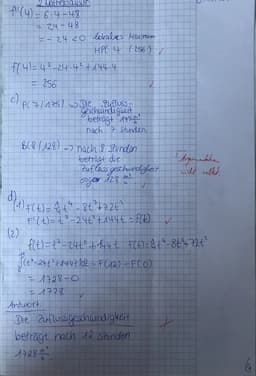 f''(4) = 6·4-48
= 24-48
= -24 < 0 lokales Maximum
HP( 4 / 256 )
f(4) = 4³-24·4²+144·4
= 256
c)
P( 7 / 175 ) → Die Zufluss-
geschwindigkeit
beträgt 175
nach 7 Stunden
( 8 / 128 ) → nach 8 Stunden
beträgt die
Zuflussgeschwindigkeit
128
d)
(1) F(t) = ¼t⁴ - 8t³ + 72t²
F'(t) = t³-24t²+144t = f(t)
(2)
f(t) = t³-24t²+144t F(t) = ¼t⁴-8t³+72t²
(t³-24t²+144t)dt = F(12) - F(0)
= 1728-0
= 1728
Antwort:
Die Zuflussgeschwindigkeit
beträgt nach 12 Stunden
1728